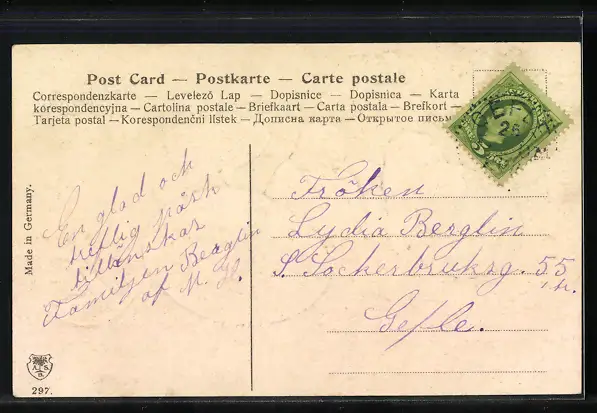 Post Card — Postkarte — Carte postale
Correspondenzkarte — Levelező Lap — Dopisnice — Dopisnica — Karta
korespondencyjna — Cartolina postale — Briefkaart — Carta postala — Brefkort —
Tarjeta postal — Korespondenční lístek — Дописна карта — Открытое письмо
GEFLE
26
5
Made in Germany.
En glad och
treflig påsk
tillönskas
Familjen Berglin
af M. H.
Fröken
Lydia Berglin
S. Sockerbruksg. 55
Gefle.
297.